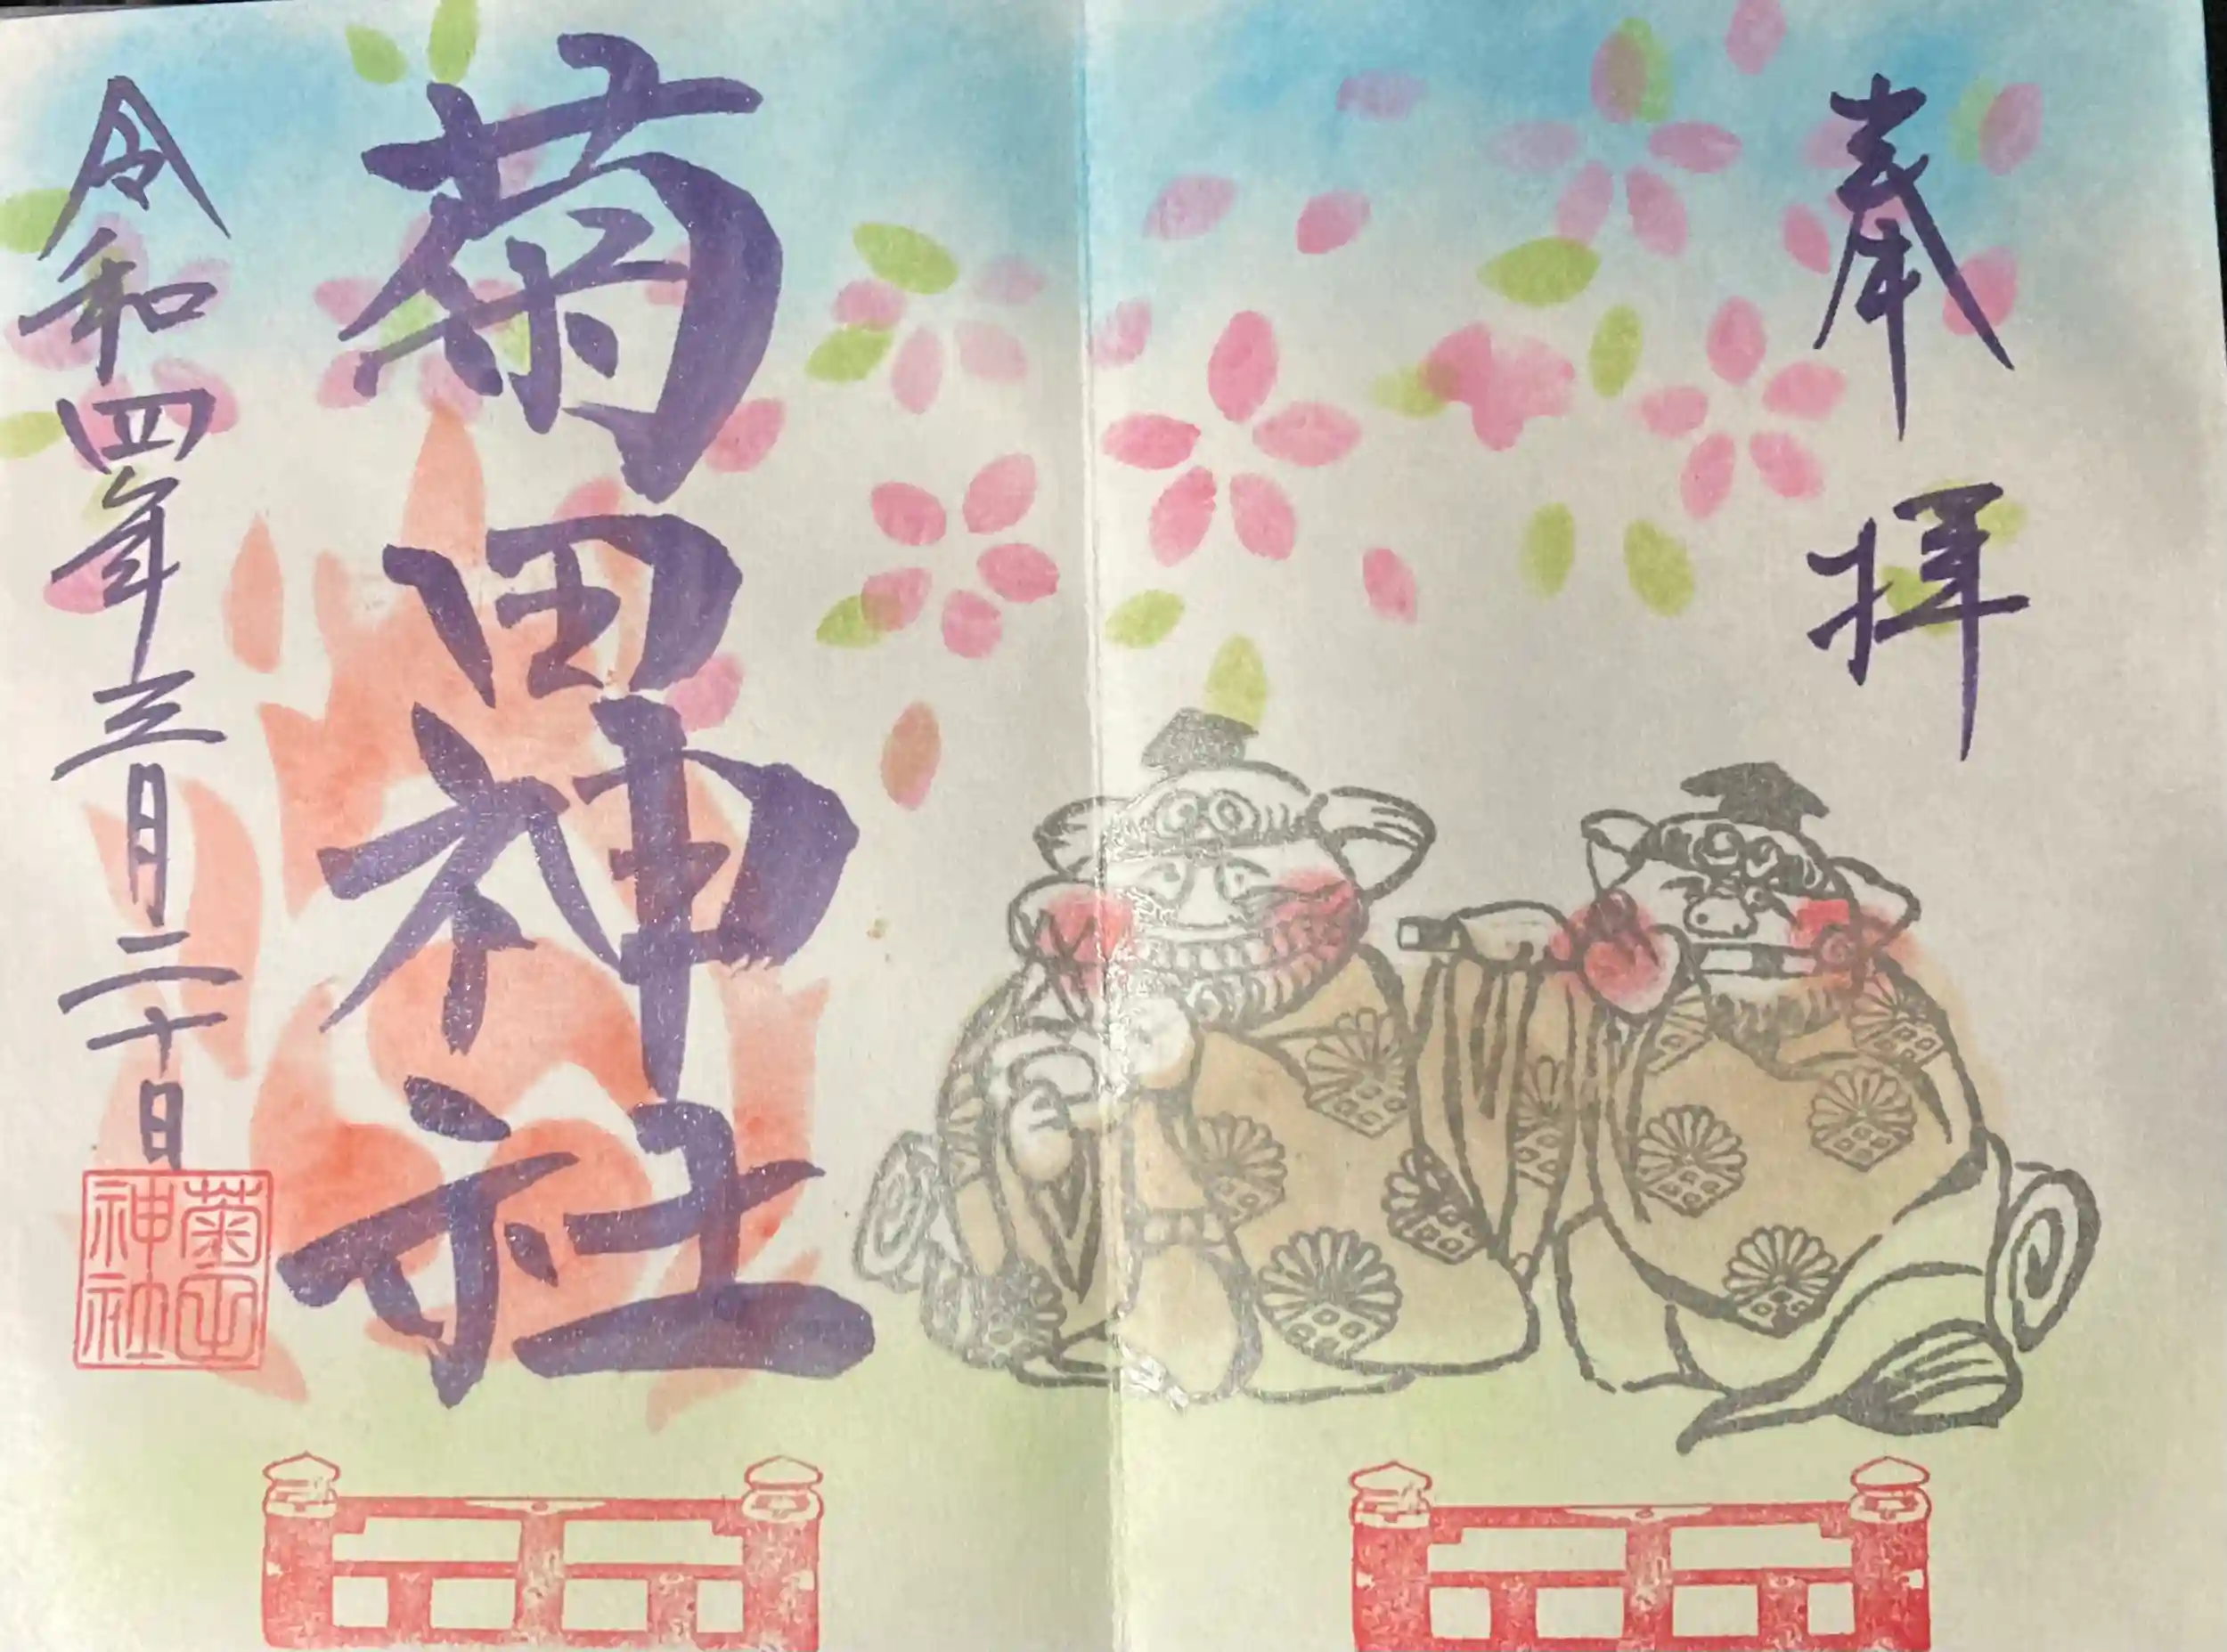 奉拝
菊田神社
令和四年三月二十日
菊田
神社